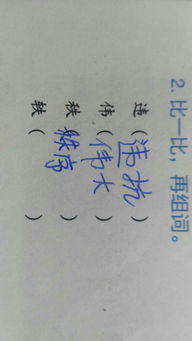 2. 比一比，再组词。
违（违抗）
伟（伟大）
秩（秩序）
轶（ ）